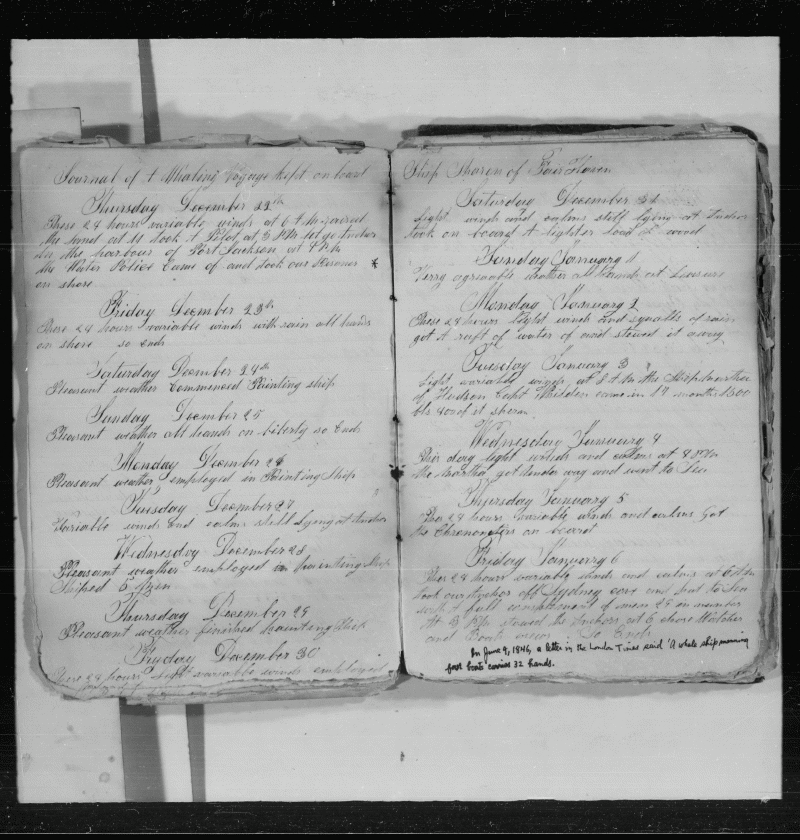 Journal of A Whaling voyage kept on board
Thursday December 22th
These 24 hours variable winds at 6 A M
the land at 11 took A Pilot at 3 P.M. let go Anchor
in the harbour of Port Jackson at 4 P.M
the Water Police Came of and took our Prisoner *
on shore
Friday December 23th
These 24 hours variable winds with rain all hands
on shore so ends
Saturday December 24th
Pleasant weather Commenced Painting ship
Sunday December 25
Pleasant weather all hands on liberty so Ends
Monday December 26
Pleasant weather employed in Painting Ship
Tuesday December 27
Variable winds and calms still Lying at Anchor
Wednesday December 28
Pleasant weather employed in painting Ship
Shiped 5 Men
Thursday December 29
Pleasant weather finished painting Ship
Fryday December 30
These 24 hours light variable winds employed
Ship Sharon of Fair Haven
Saturday December 31
Light winds and calms still lying at Anchor
took on board A lighter load of wood
Sunday January 1
Verry agreeable weather all hands at Leisure
Monday January 2
These 24 hours light winds and squalls of rain
got A raft of water of and stowed it away
Tuesday January 3
Light variable winds at 8 A M the Ship Martha
of Hudson Capt came in 17 months 1500
bls 400 of it sperm
Wednesday January 4
This day light winds and calms at 4 P.M
the Martha got under way and went to Sea
Thursday January 5
These 24 hours variable winds and calms Got
the Chronometers on board
Friday January 6
These 24 hours variable winds and calms at 6 A M
took our Anchor off Sydney cove and beat to Sea
with A full complement of men 29 in number
At 3 P.M. stowed the Anchors at 6 chose Watches
and Boats crews So Ends
On June 9, 1846, a letter in the London Times said 'A whale ship manning
four boats carries 32 hands.